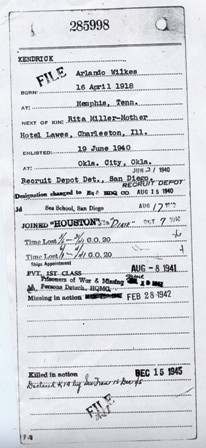 285998
KENDRICK
FILE
Arlando Wilkes
BORN: 16 April 1918
AT: Memphis, Tenn.
NEXT OF KIN: Rita Miller-Mother
Hotel Lawes, Charleston, Ill.
ENLISTED: 19 June 1940
AT: Okla. City, Okla.
JUN 21 1940
Recruit Depot Det., San Diego
RECRUIT DEPOT
Designation changed to HQ CO. AUG 15 1940
Jd Sea School, San Diego AUG 17
JOINED "HOUSTON" OCT 7 1940
Time Lost C.O. 20
Time Lost C.O. 20
PVT. 1ST. CLASS AUG - 8 1941
Prisoners of War & Missing
Persons Detach, HQMC
Missing in action FEB 28 1942
Killed in action DEC 15 1945
FILE